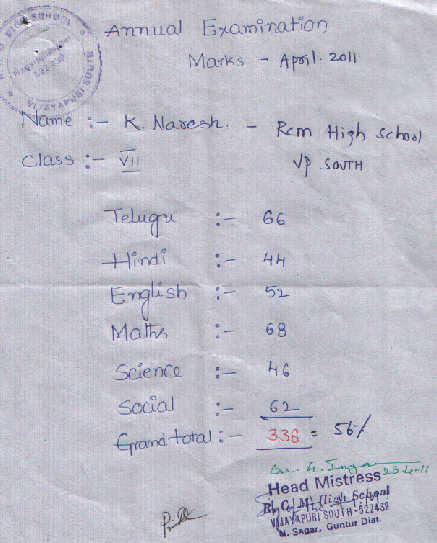 Annual Examination
Marks - April. 2011
Name :- K. Naresh. - Rcm High School
Class :- VII
VP SOUTH
Telugu :- 66
Hindi :- 44
English :- 52
Maths :- 68
Science :- 46
Social :- 62
Grand total :- 338 = 56%
Head Mistress
R. C. M. High School
VIJAYAPURI SOUTH-522439
N. SAGAR, Guntur Dist